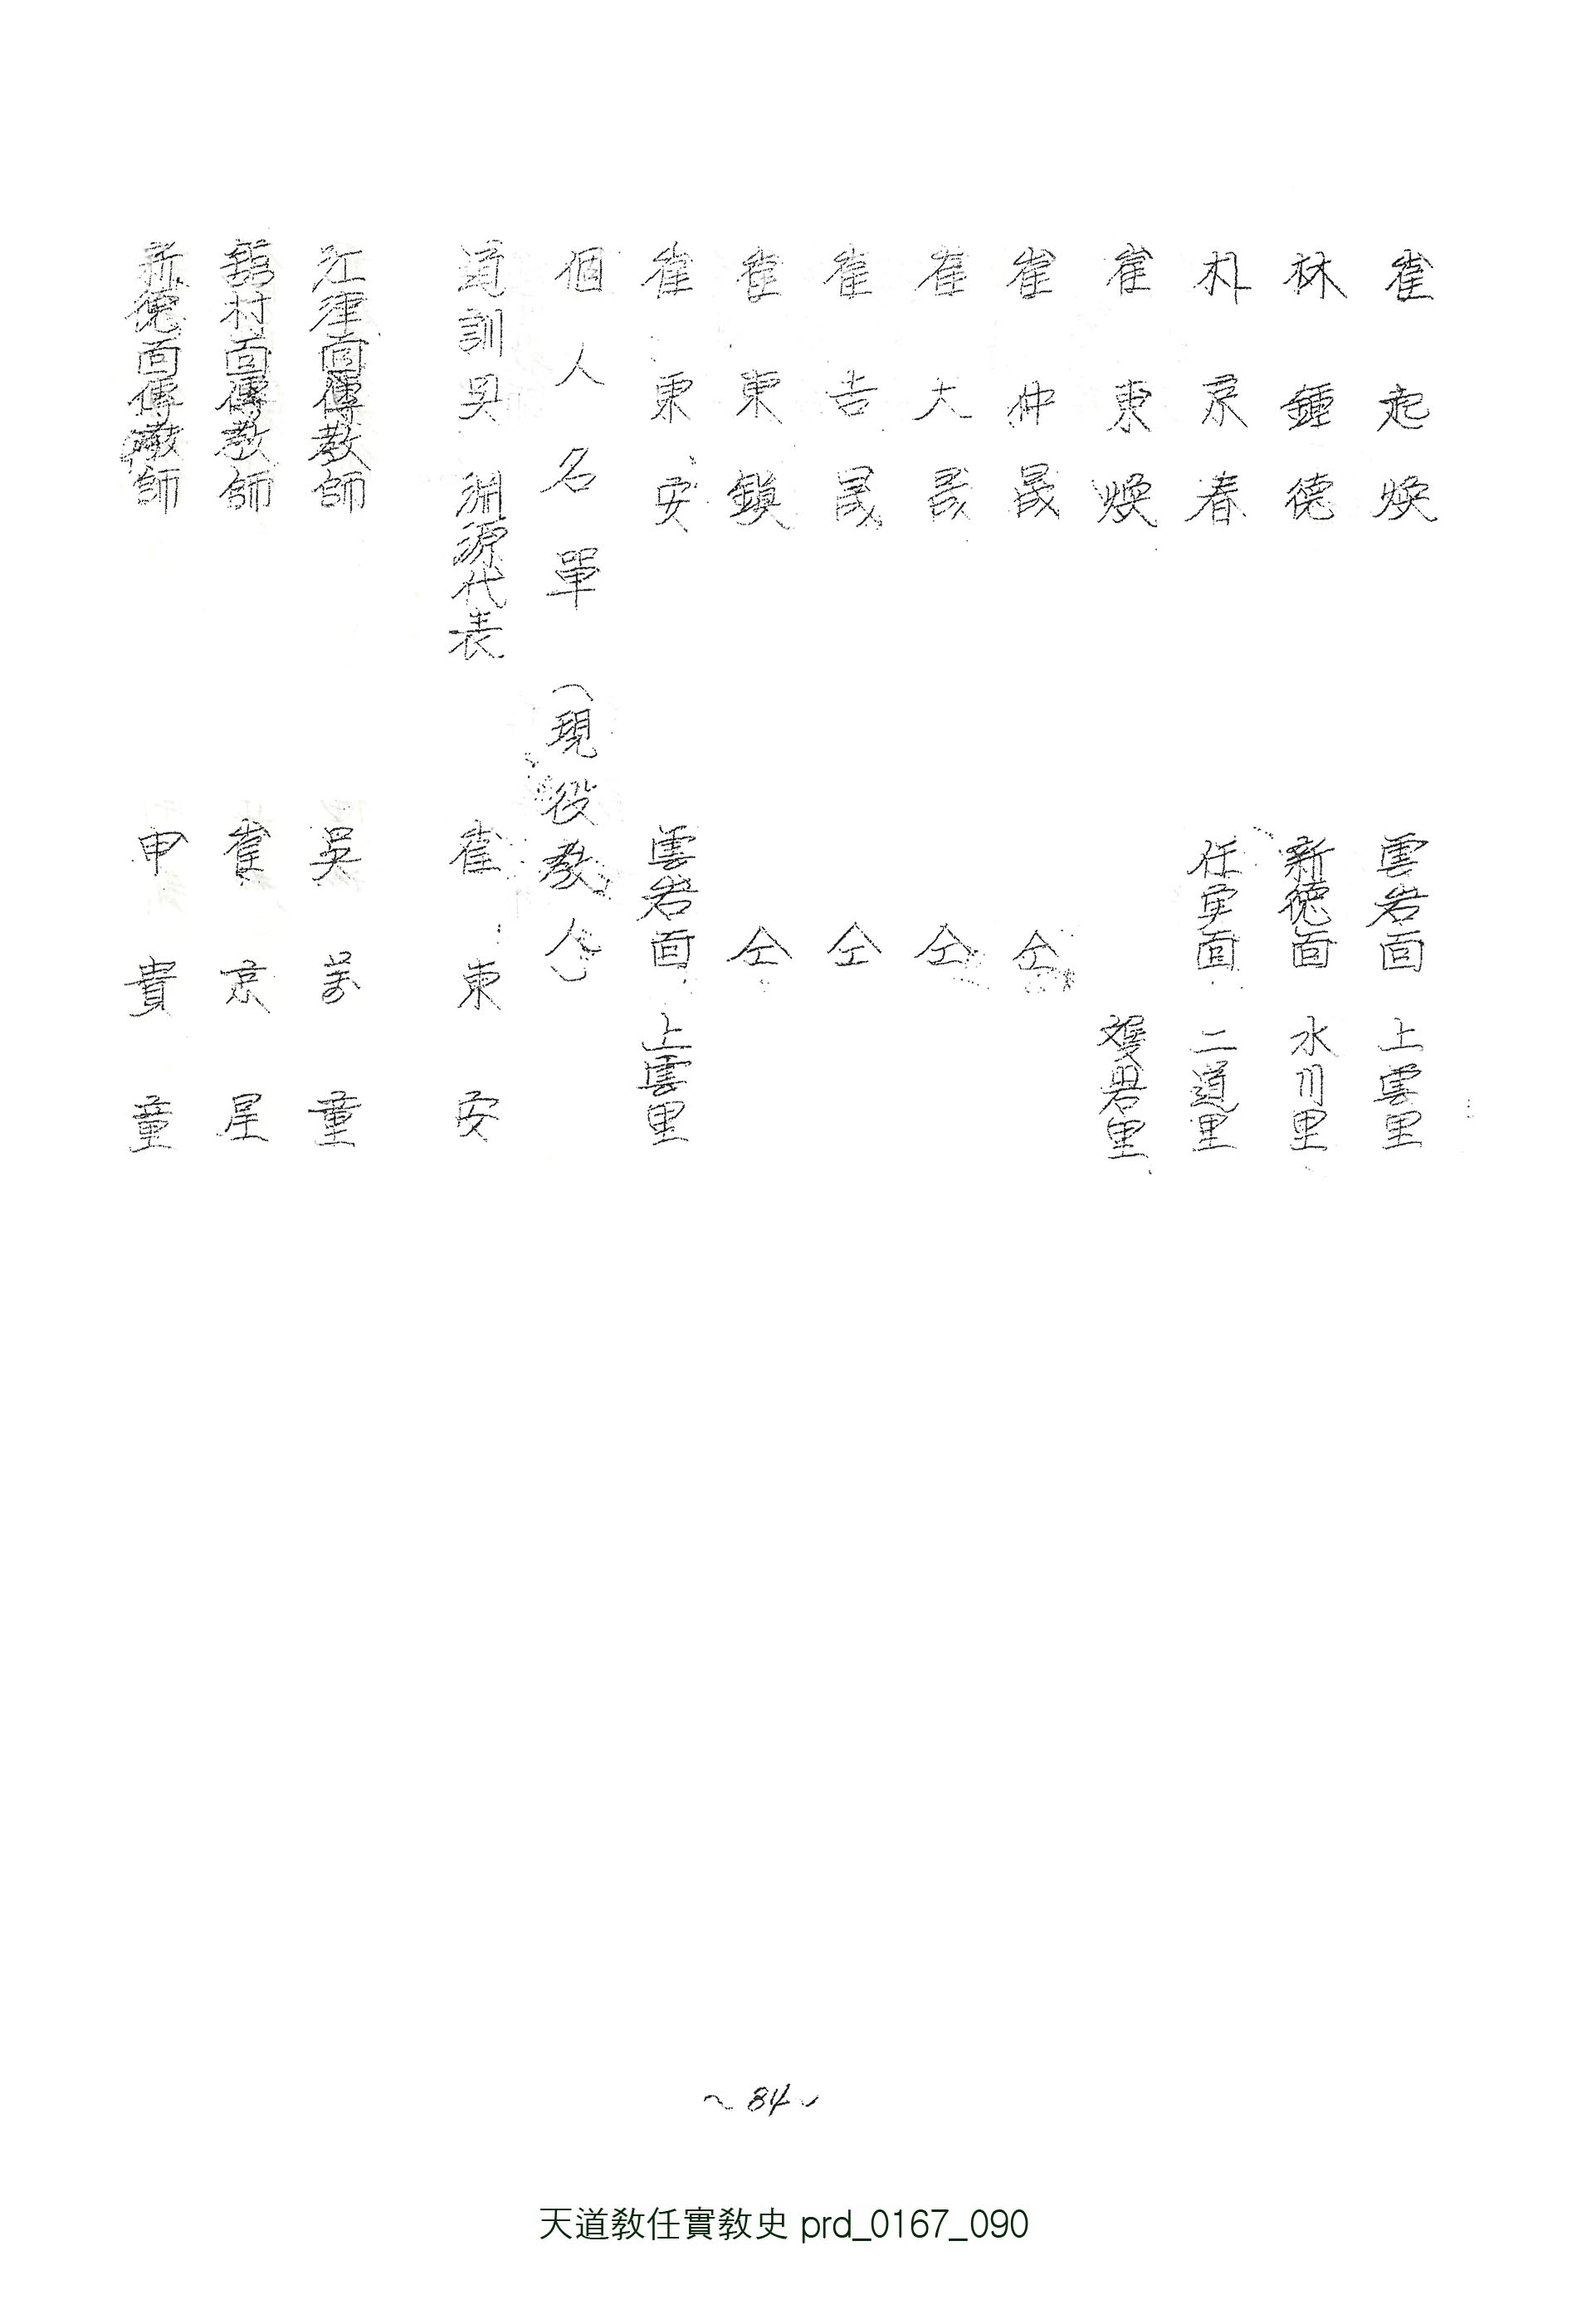 崔起煥 雲岩面 上雲里
林鍾德 新德面 水川里
朴京春 任実面 二道里
崔東煥 雙岩里
崔仲晟 仝
崔大晟 仝
崔吉晟 仝
崔東鎭 仝
崔東安 雲岩面 上雲里
個人名單 (現役教人)
道訓 淵源代表 崔東安
江津面傳教師 吳童
舘村面傳教師 崔京星
新德面傳教師 申貴童
~84~
天道敎任實敎史 prd_0167_090